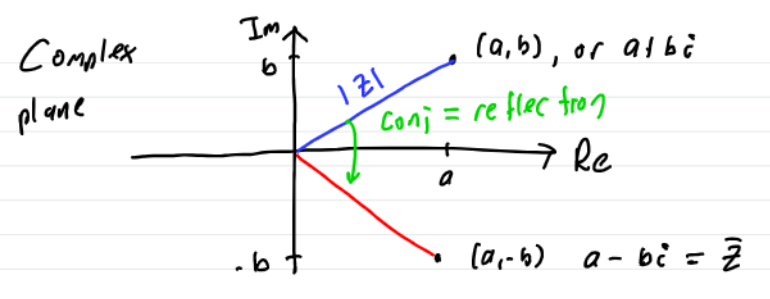 Complex
plane
Im
b
|z|
(a,b), or a+bi
conj = reflection
a
Re
-b
(a,-b) a - bi = z̄